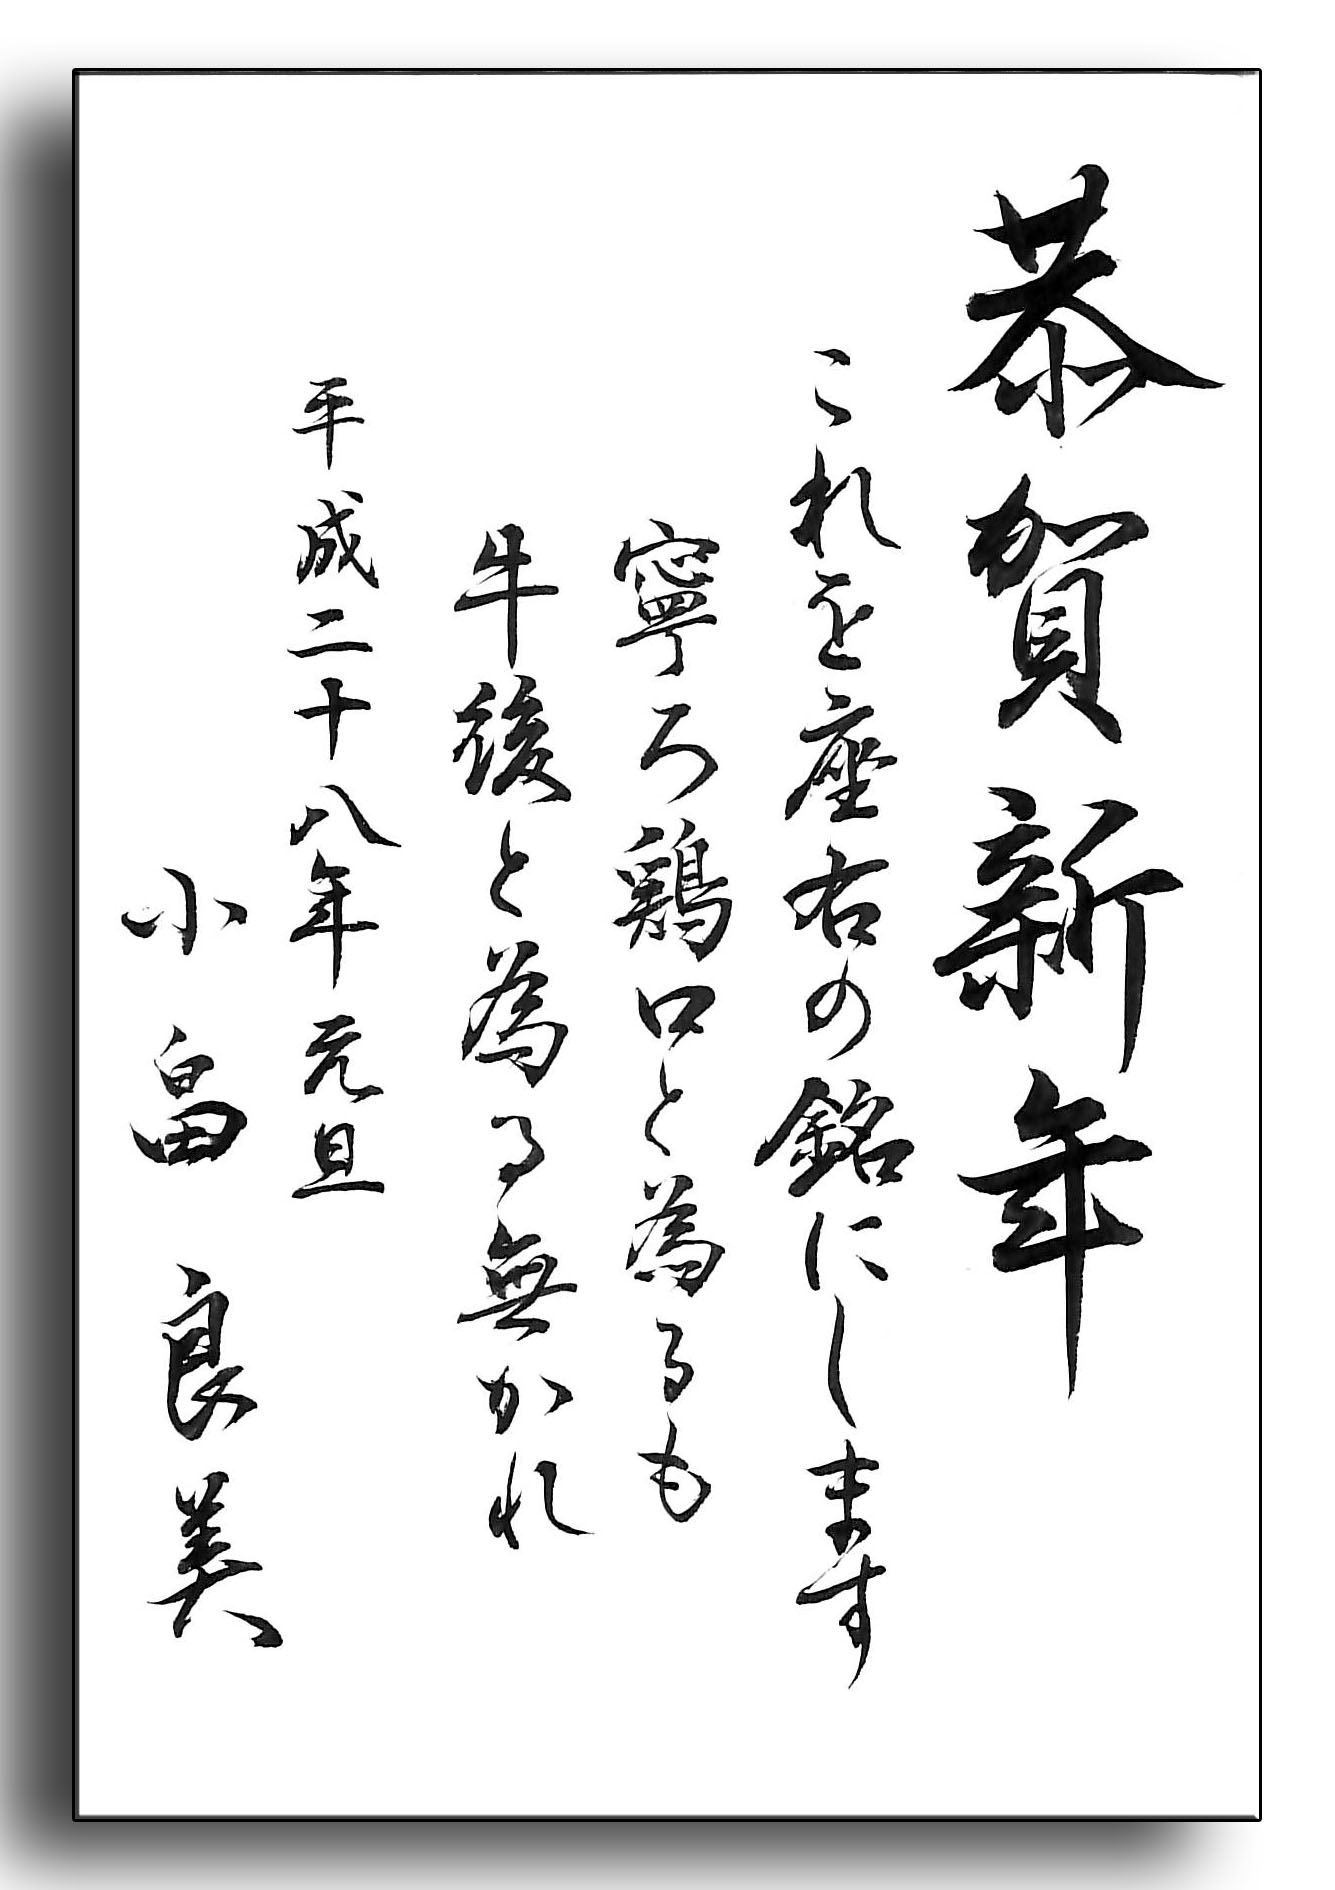 恭賀新年
これを座右の銘にします
寧ろ鶏口と為るも
牛後と為る無かれ
平成二十八年元旦
小畠良美